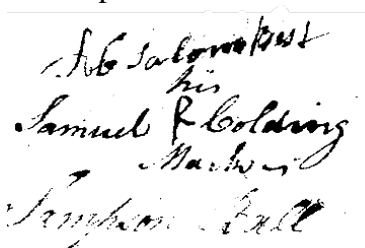 Absalom Best
his
Samuel & Golding
Mark
Sampson Hall